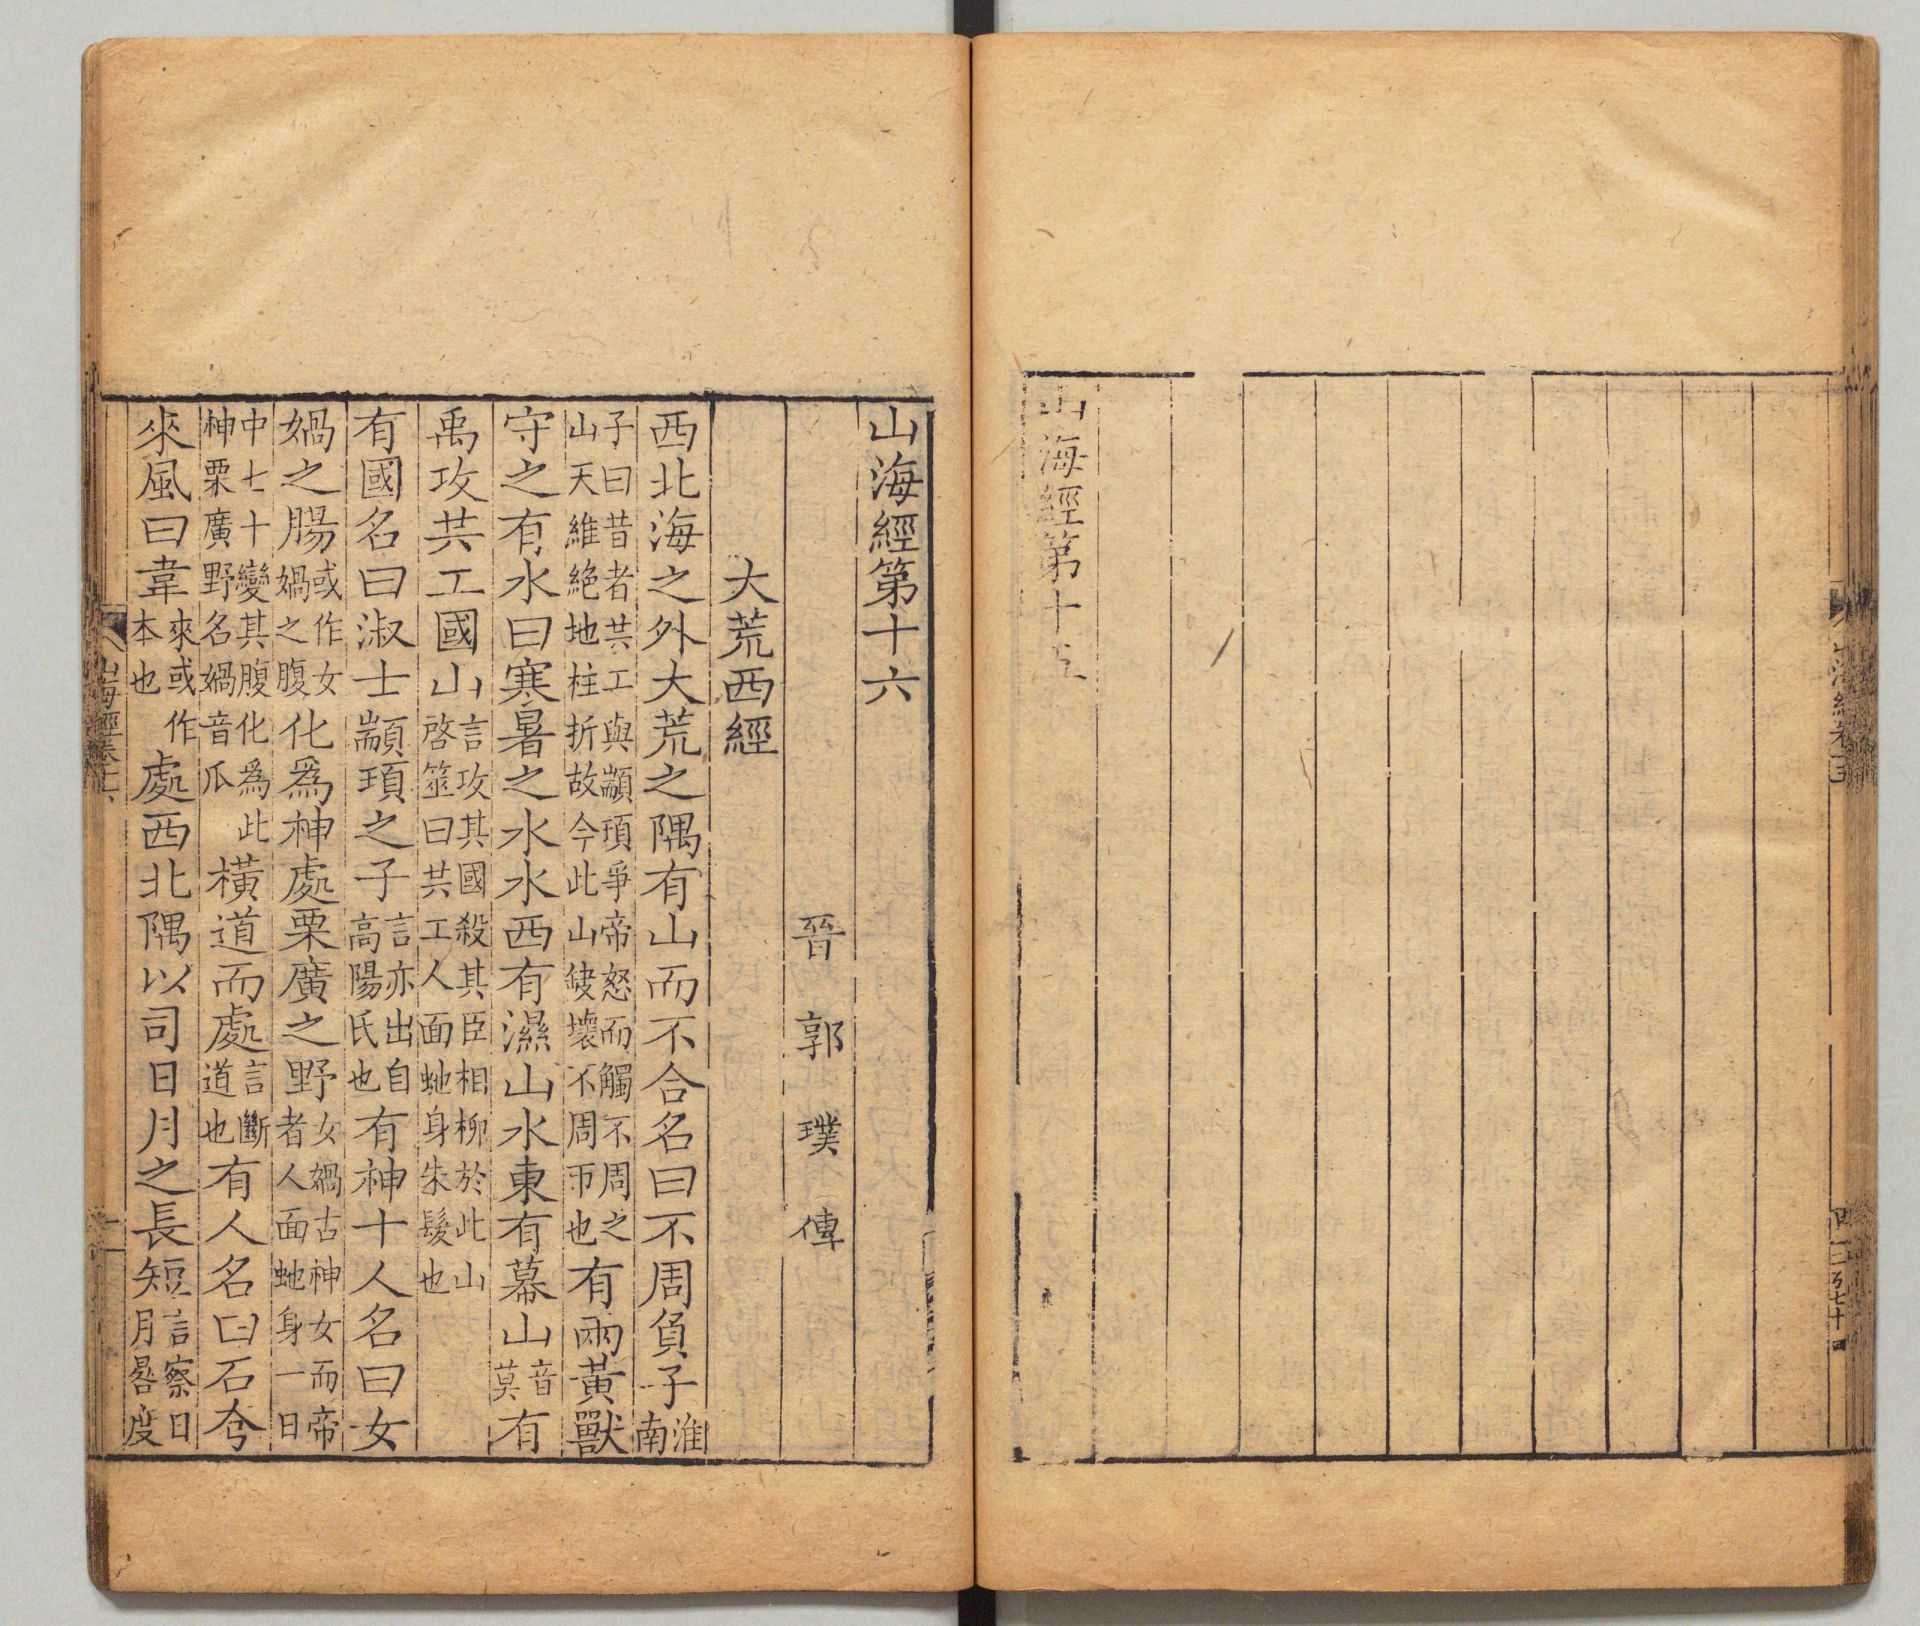 山海經第十五
山海經第十六
晉郭璞傳
大荒西經
西北海之外大荒之隅有山而不合名曰不周負子淮南
子曰昔者共工與顓頊爭帝怒而觸不周之山天維絶地柱折故今此山缺壞不周帀也有兩黃獸
守之有水曰寒暑之水水西有濕山水東有幕山音莫有
禹攻共工國山言攻其國殺其臣相柳於此山啓筮曰共工人面虵身朱髮也
有國名曰淑士顓頊之子言亦出自高陽氏也有神十人名曰女
媧之腸或作女媧之腹化爲神處栗廣之野女媧古神女而帝者人面虵身一日
中七十變其腹化爲此神栗廣野名媧音瓜橫道而處言斷道也有人名曰石夸
來風曰韋來或作本也處西北隅以司日月之長短言察日月晷度
山海經卷十六